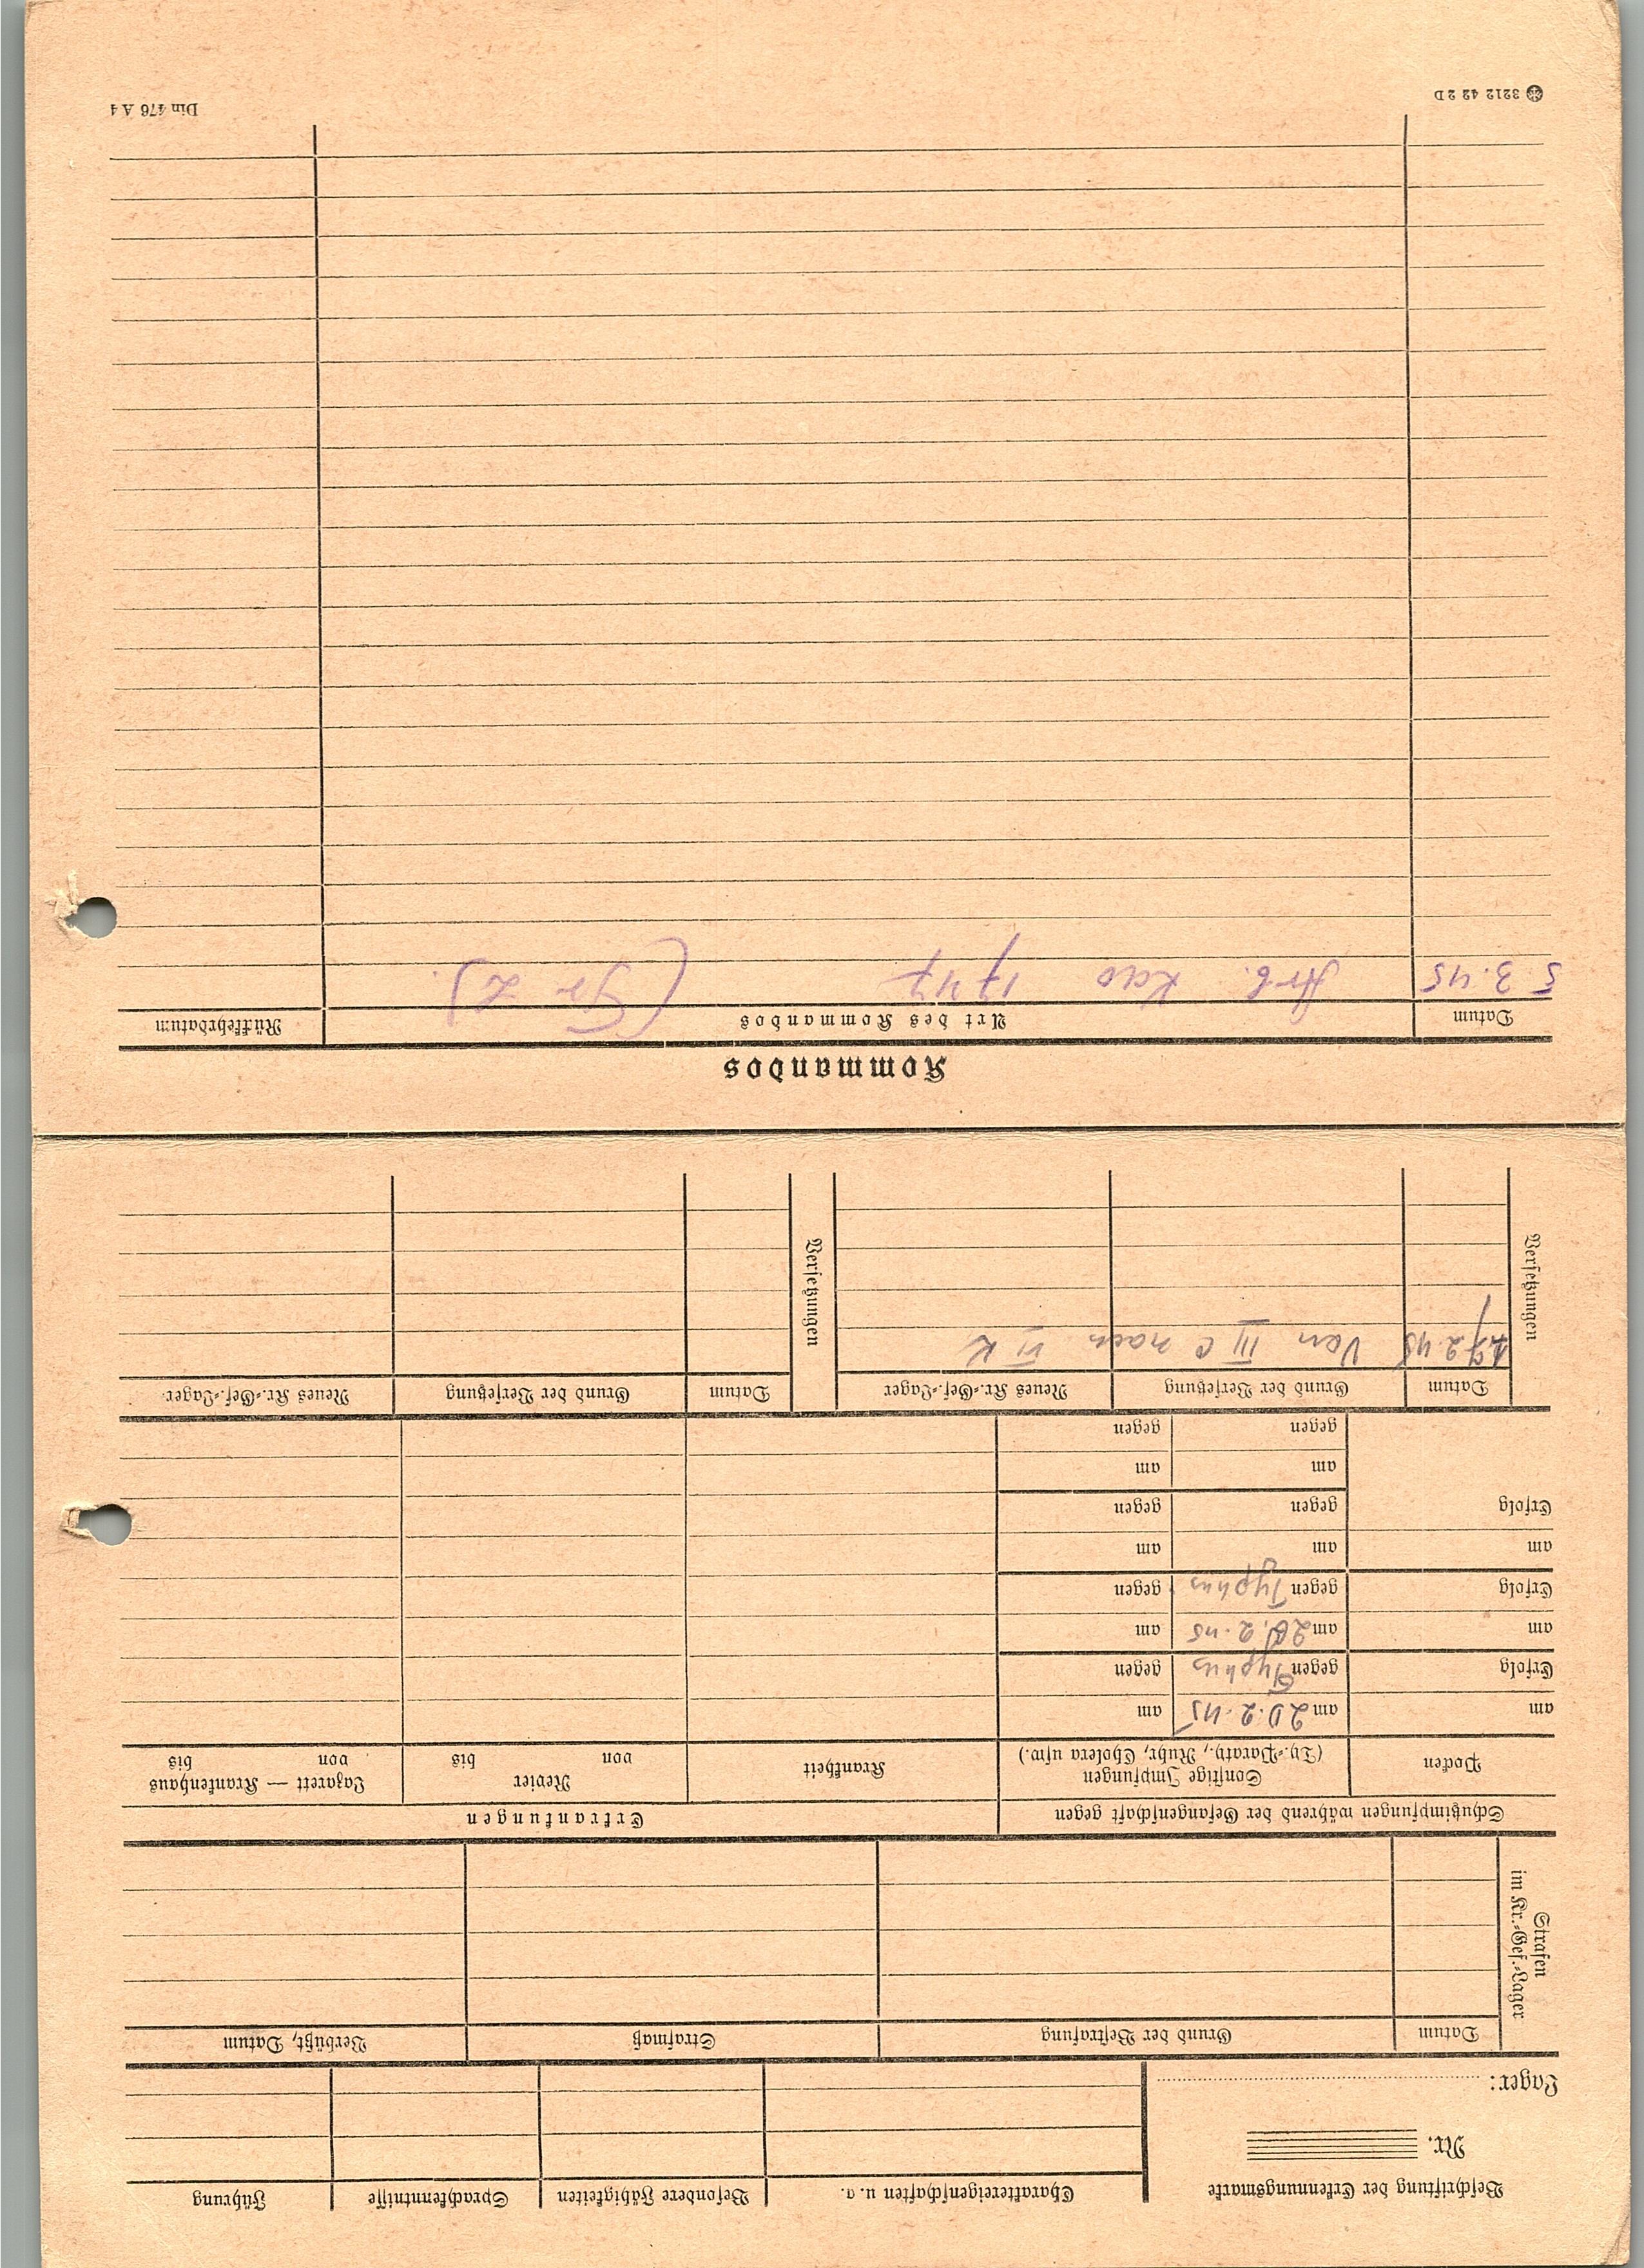 Beschriftung der Erkennungsmarke
Nr.
Lager:
Charaktereigenschaften u. a.
Besondere Fähigkeiten
Sprachkenntnisse
Führung
Strafen
im Kr.-Gef.-Lager
Datum
Grund der Bestrafung
Strafmaß
Verbüßt, Datum
Schutzimpfungen während der Gefangenschaft gegen
Erkrankungen
Pocken
Sonstige Impfungen
(Ty.-Paraty., Ruhr, Cholera usw.)
Krankheit
Revier
von bis
Lazarett — Krankenhaus
von bis
am
am 20.2.45
am
Erfolg
gegen Typhus
gegen
am
am 2 .2.45
am
Erfolg
gegen Typhus
gegen
am
am
am
Erfolg
gegen
gegen
am
am
gegen
gegen
Versetzungen
Datum
Grund der Versetzung
Neues Kr.-Gef.-Lager
Versetzungen
Datum
Grund der Versetzung
Neues Kr.-Gef.-Lager
2.45 Von III C nach VI K
Kommandos
Datum
Art des Kommandos
Rückkehrdatum
5.3.45 Arb. Kdo 1747
3212 42 2 D
Din 476 A 4